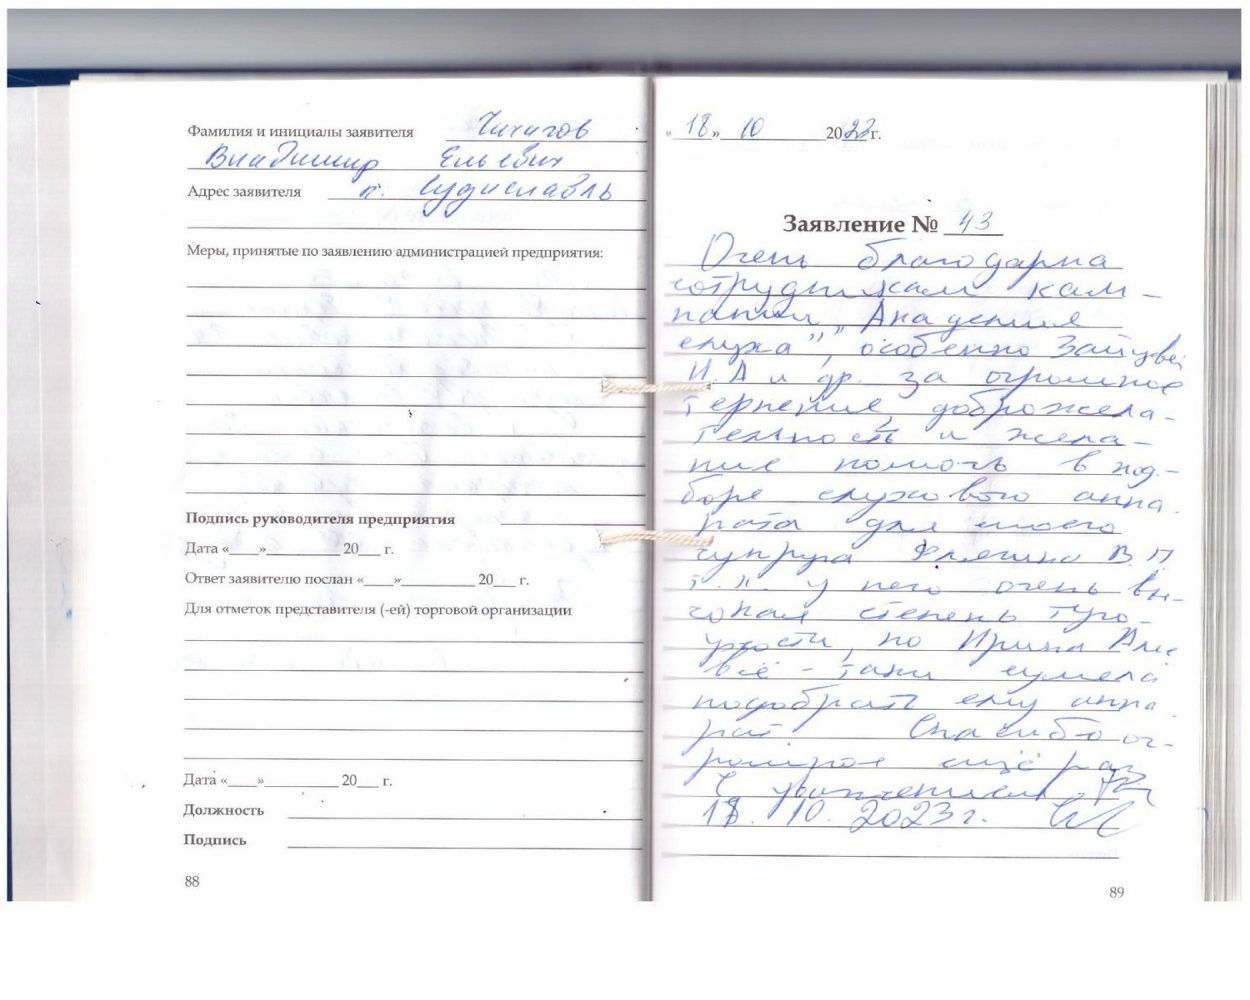 Фамилия и инициалы заявителя Чичагов
Владимир Ельевич
Адрес заявителя п. Судиславль
Меры, принятые по заявлению администрацией предприятия:
Подпись руководителя предприятия
Дата «____»__________ 20___ г.
Ответ заявителю послан «____»__________ 20___ г.
Для отметок представителя (-ей) торговой организации
Дата «____»__________ 20___ г.
Должность
Подпись
88
« 18 » 10 2023 г.
Заявление № 43
Очень благодарна
сотрудникам ком-
пании „Академия
слуха”, особенно Зайцевой
И.А и др. за огромное
терпение, доброжела-
тельность и жела-
ние помочь в под-
боре слухового аппа
рата для моего
супруга В.П
т.к. у него очень вы-
сокая степень туго-
ухости, но Ирина Ал
всё-таки сумела
подобрать ему аппа
рат. Спасибо ог-
ромное ещё раз
С уважением
18. 10. 2023г.
89